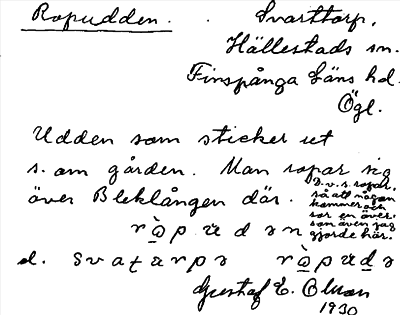 Ropudden. Svarttorp,
Hällestads sn.
Finspånga Läns hd.
Ögl.
Udden som sticker ut
s. om gården. Man ropar sig
över Bleklången där.
D.v.s. ropar,
så att någon
kommer och
ror en över,
som även jag
gjorde här.
d. svatarpə
Gustaf E. Olsson
1930